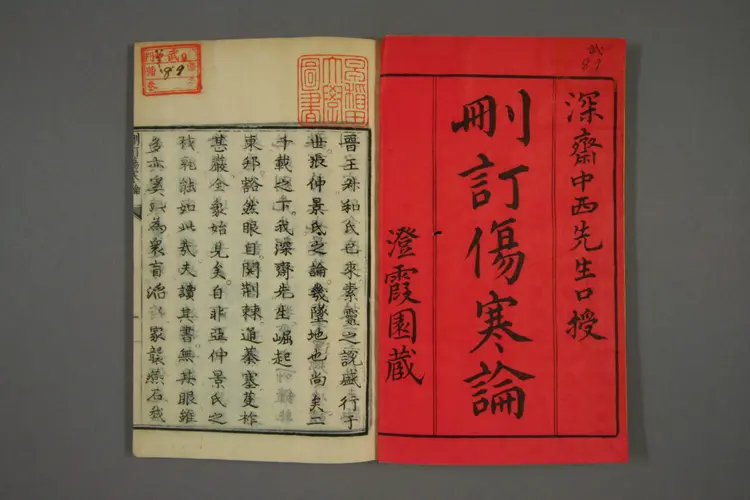 深齋中西先生口授
刪訂傷寒論
澄霞園藏
晉王叔和氏已來素靈之說盛行于
世張仲景氏之論幾墜地也尚矣二
千載之下我深齋先生崛起
東邦豁然眼目闢荊棘通蓁塞蔓柞
甚嚴全象始見矣自非亞仲景氏之
孰能如此哉夫讀其書無其眼雖
多亦奚為衆盲
家襲燕石
早稲田
大學
圖書
89